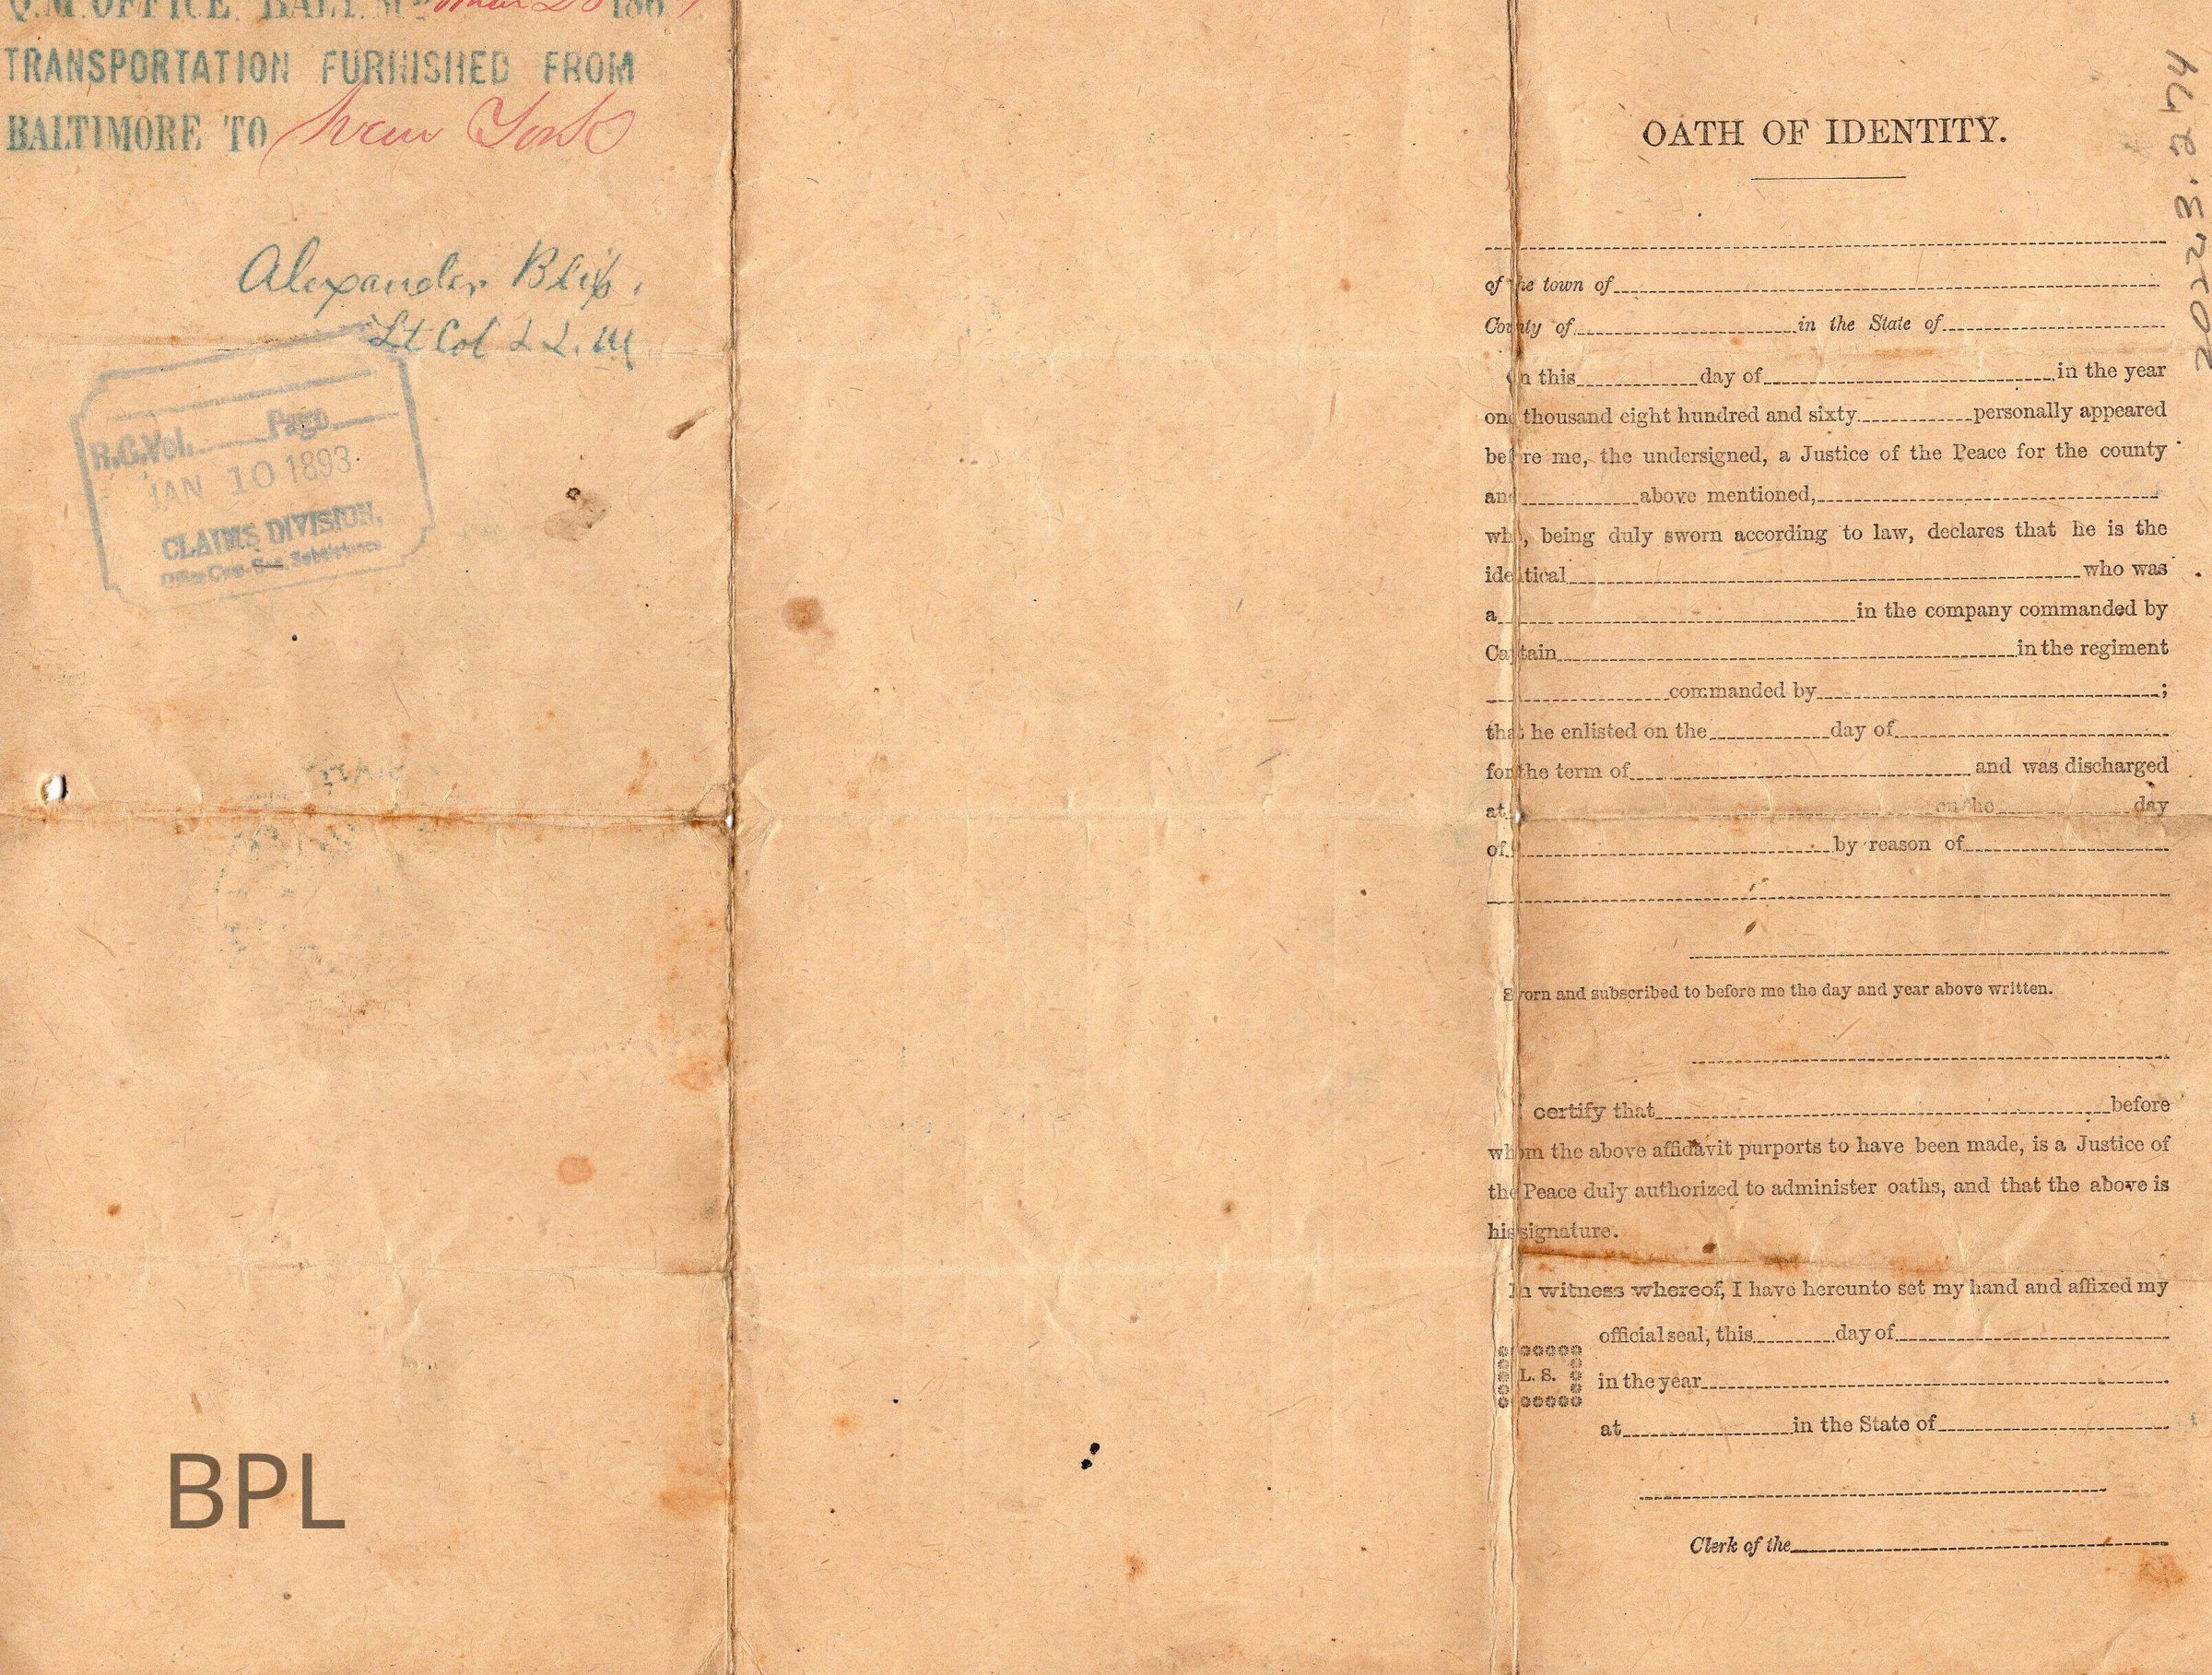 Q.M. OFFICE. BALT. Md. 186
TRANSPORTATION FURNISHED FROM
BALTIMORE TO New York
Alexander Bliss.
Lt Col Q.M.
R.C. Vol. Page
JAN 10 1893
CLAIMS DIVISION,
Office Com. Gen. Subsistence
BPL
2022 3. 274
OATH OF IDENTITY.
of the town of
County of in the State of
On this day of in the year
one thousand eight hundred and sixty personally appeared
before me, the undersigned, a Justice of the Peace for the county
and above mentioned,
who, being duly sworn according to law, declares that he is the
identical who was
a in the company commanded by
Captain in the regiment
commanded by ;
that he enlisted on the day of
for the term of and was discharged
at on the day
of by reason of
Sworn and subscribed to before me the day and year above written.
I certify that before
whom the above affidavit purports to have been made, is a Justice of
the Peace duly authorized to administer oaths, and that the above is
his signature.
In witness whereof, I have hereunto set my hand and affixed my
official seal, this day of
L. S. in the year
at in the State of
Clerk of the